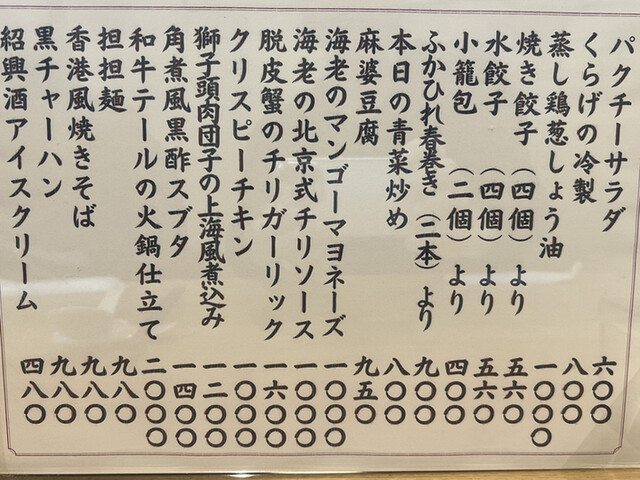 パクチーサラダ 六〇〇
くらげの冷製 八〇〇
蒸し鶏葱しょう油 一〇〇〇
焼き餃子(四個)より 五六〇
水餃子(四個)より 五六〇
小籠包(二個)より 四〇〇
ふかひれ春巻き(二本)より 九〇〇
本日の青菜炒め 八〇〇
麻婆豆腐 九五〇
海老のマンゴーマヨネーズ 一〇〇〇
海老の北京式チリソース 一〇〇〇
脱皮蟹のチリガーリック 一六〇〇
クリスピーチキン 一〇〇〇
獅子頭肉団子の上海風煮込み 一二〇〇
角煮風黒酢スブタ 一四〇〇
和牛テールの火鍋仕立て 二〇〇〇
担担麺 九八〇
香港風焼きそば 九八〇
黒チャーハン 九八〇
紹興酒アイスクリーム 四八〇